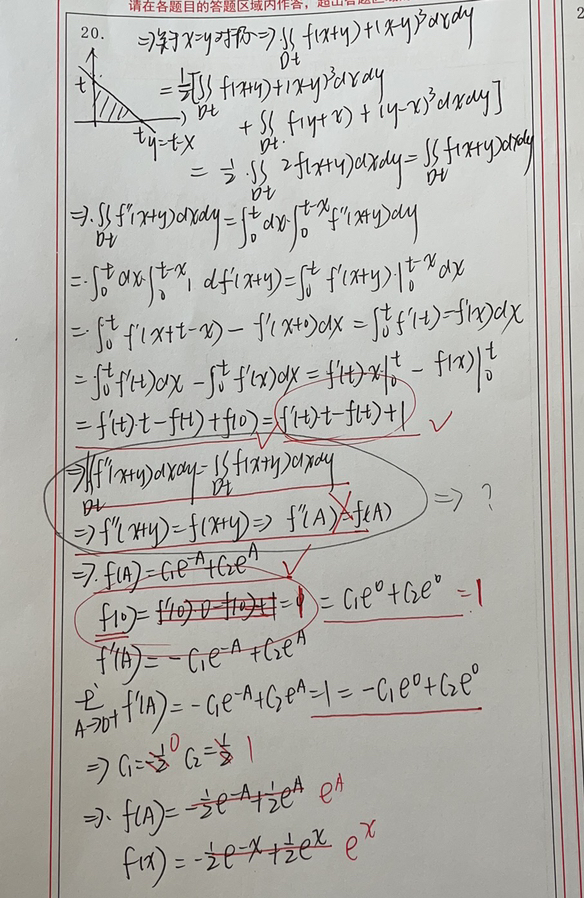 请在各题目的答题区域内作答,超出答题区域
20.
⇒关于x=y对称⇒∬_{Dt} f(x+y)+(x-y)³dxdy
=½[∬_{Dt} f(x+y)+(x-y)³dxdy
+∬_{Dt} f(y+x)+(y-x)³dxdy]
t
t
y=t-x
=½·∬_{Dt} 2f(x+y)dxdy=∬_{Dt} f(x+y)dxdy
⇒.∬_{Dt} f''(x+y)dxdy=∫₀^t dx·∫₀^{t-x} f''(x+y)dy
=.∫₀^t dx·∫₀^{t-x} df'(x+y)=∫₀^t f'(x+y)·|₀^{t-x} dx
=.∫₀^t f'(x+t-x)-f'(x+0)dx=∫₀^t f'(t)-f'(x)dx
=∫₀^t f'(t)dx-∫₀^t f'(x)dx=f'(t)·x|₀^t-f(x)|₀^t
=f'(t)·t-f(t)+f(0)=f'(t)·t-f(t)+1 ✓
⇒∬_{Dt} f''(x+y)dxdy=∬_{Dt} f(x+y)dxdy
⇒f''(x+y)=f(x+y)⇒f''(A)=f(A) ⇒?
⇒.f(A)=C₁e^{-A}+C₂e^A ✓
f(0)=f'(0)·0-f(0)+1=1=C₁e⁰+C₂e⁰=1
f'(A)=-C₁e^{-A}+C₂e^A
A→0+ f'(A)=-C₁e^{-A}+C₂e^A=1=-C₁e⁰+C₂e⁰
⇒C₁=-½ 0 C₂=½ 1
⇒.f(A)=-½e^{-A}+½e^A e^A
f(x)=-½e^{-x}+½e^x e^x
2